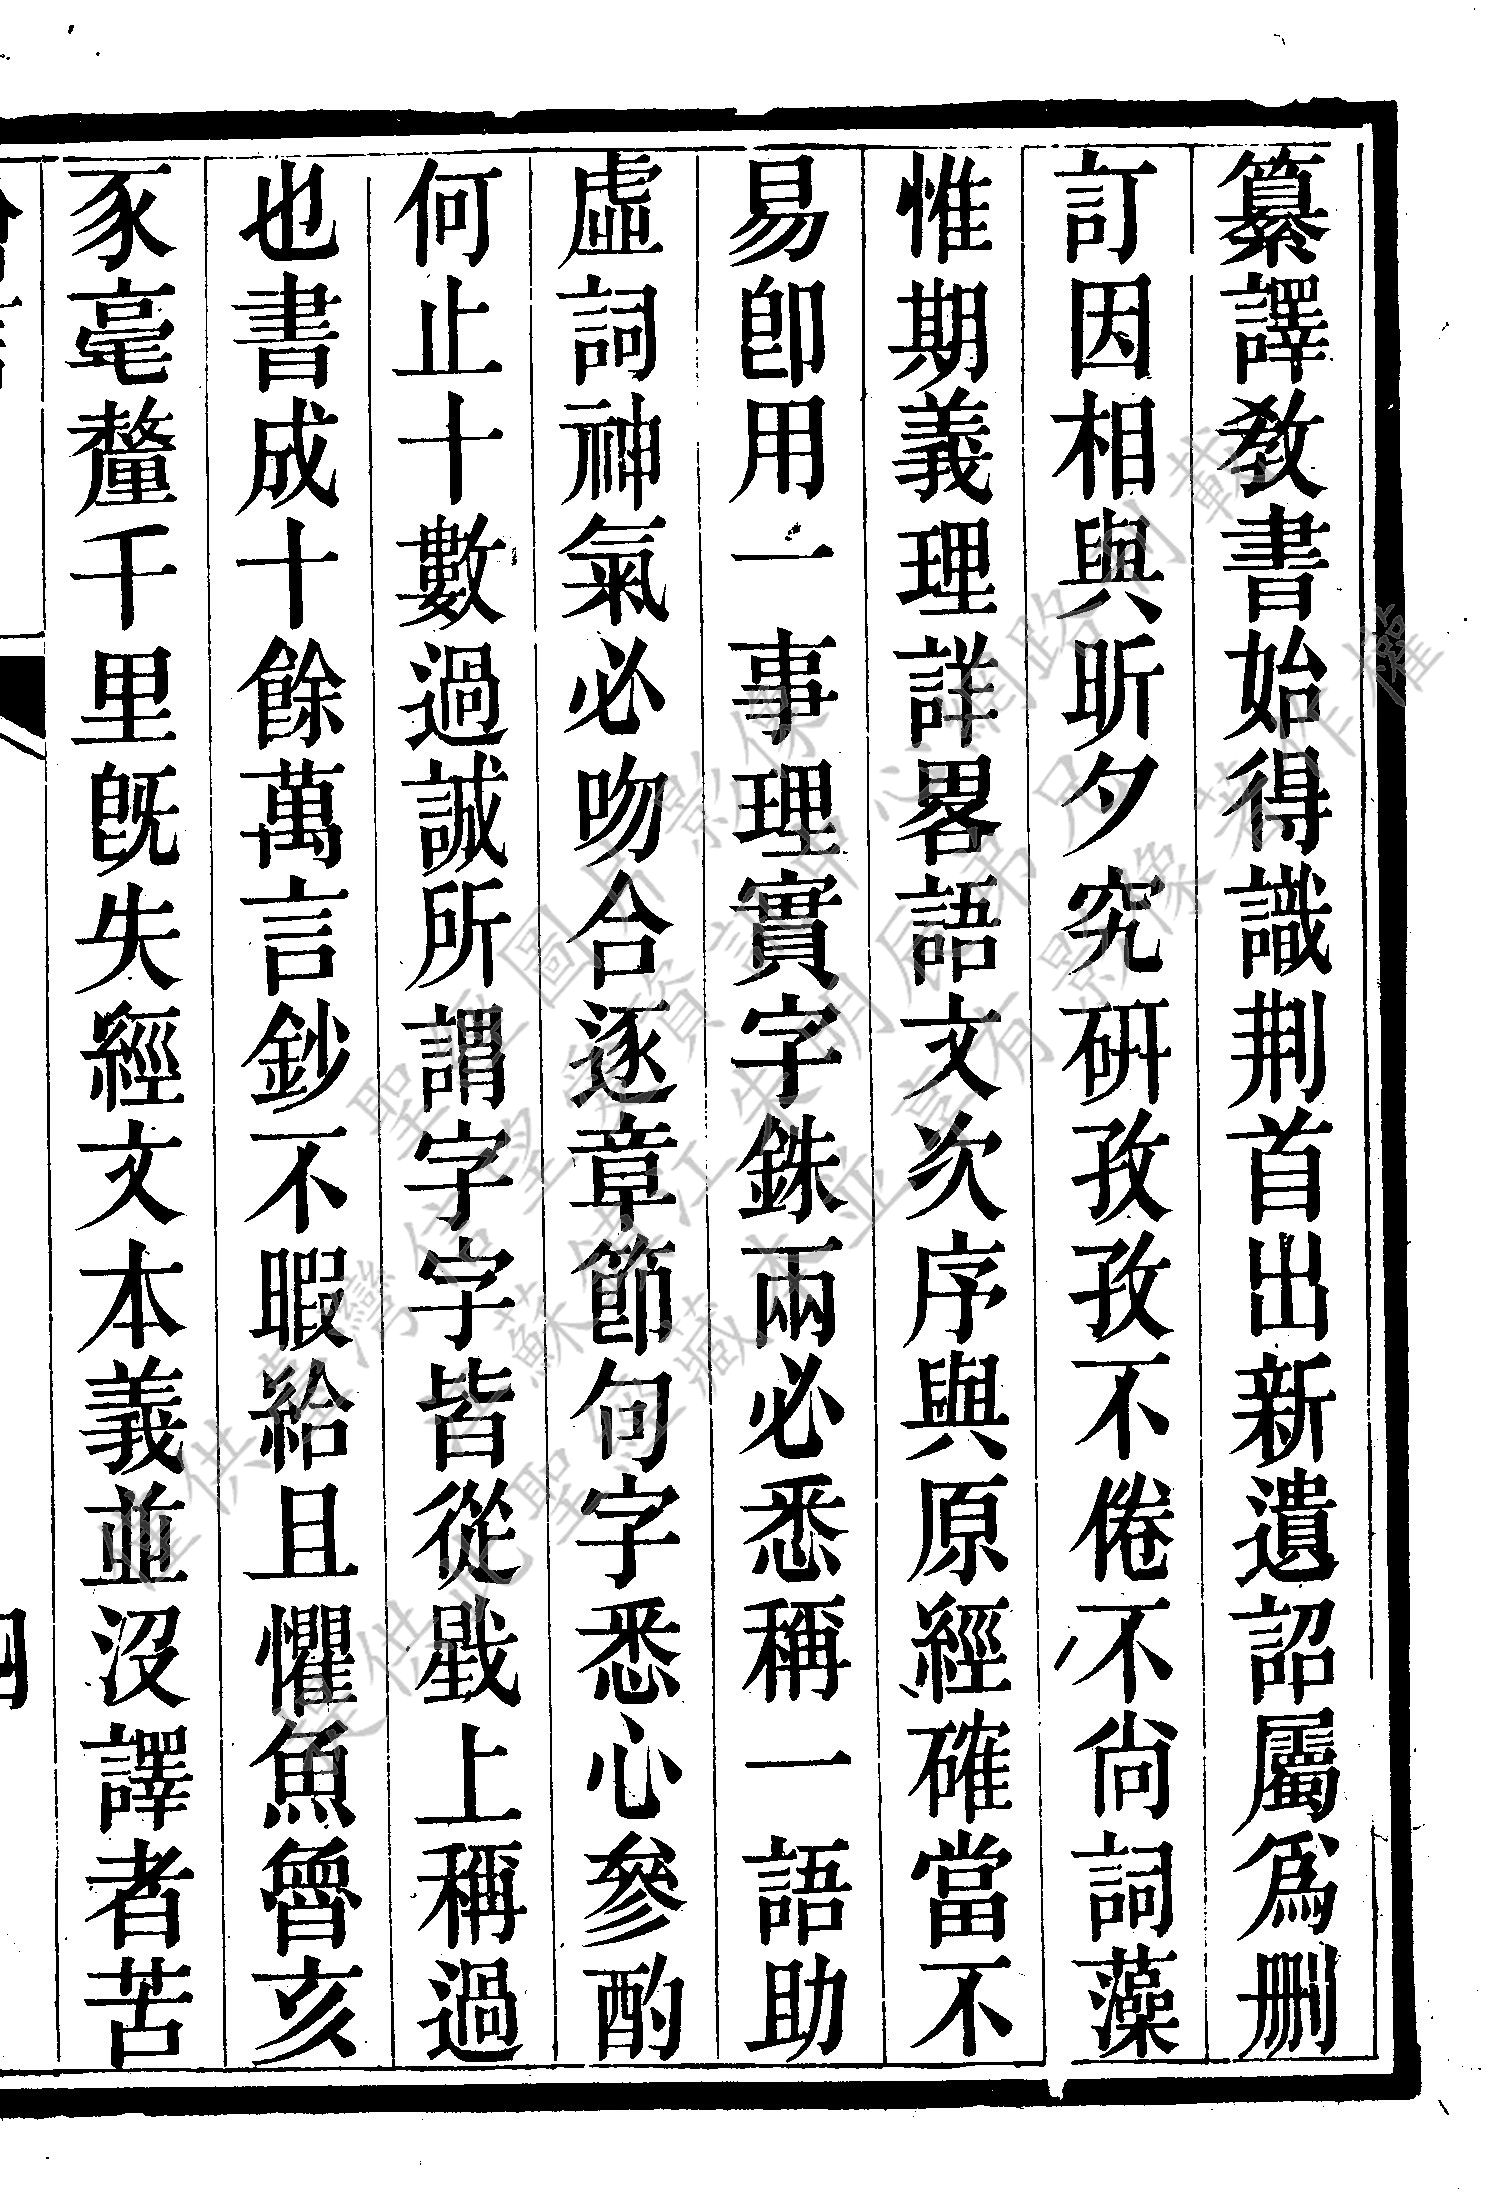 纂譯敎書始得識荆首出新遺詔屬爲删
訂因相與昕夕究硏孜孜不倦不尙詞藻
惟期義理詳畧語文次序與原經確當不
易卽用一事理實字銖兩必悉稱一語助
虛詞神氣必吻合逐章節句字悉心參酌
何止十數過誠所謂字字皆從戥上稱過
也書成十餘萬言鈔不暇給且懼魚魯亥
豕毫釐千里旣失經文本義並沒譯者苦